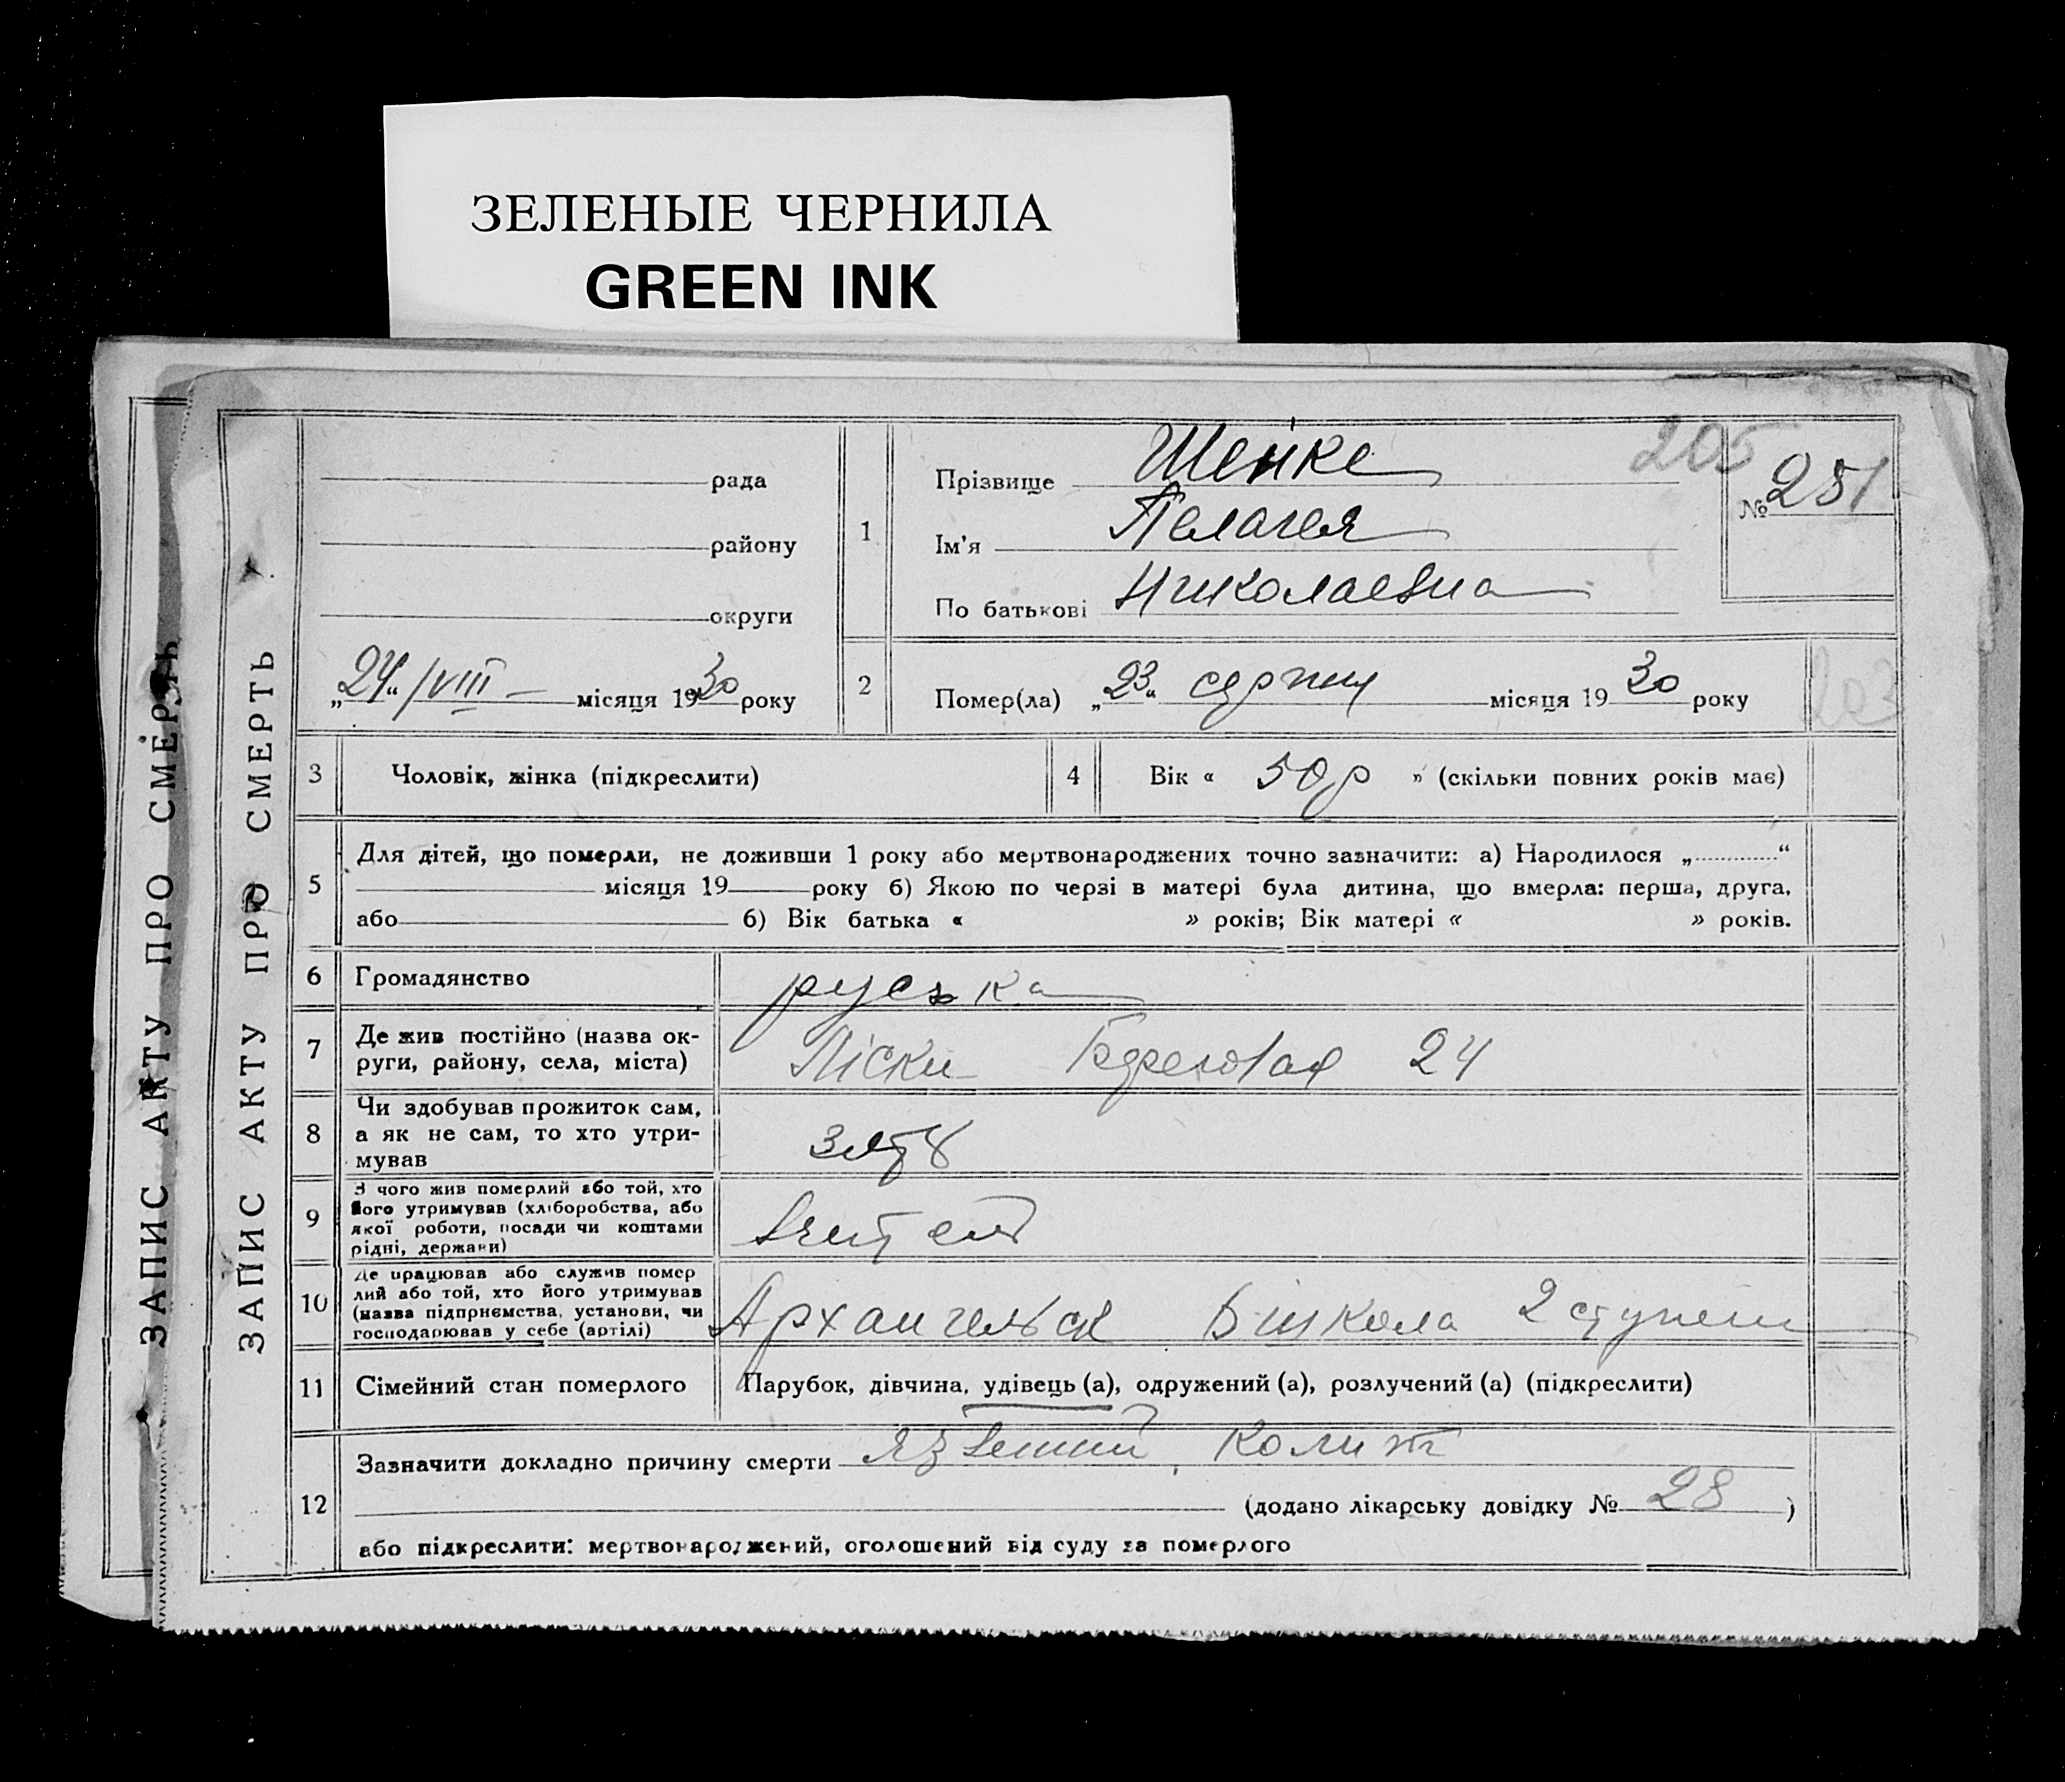 ЗЕЛЕНЫЕ ЧЕРНИЛА
GREEN INK
ЗАПИС АКТУ ПРО СМЕРТЬ
ЗАПИС АКТУ ПРО СМЕРТЬ
рада
району
округи
„24“ /VIII місяця 1930 року
1
Прізвище Шейке
Ім'я Пелагея
По батькові Николаевна
205
№ 251
2
Помер(ла) „23“ серпня місяця 1930 року
203
3 Чоловік, жінка (підкреслити)
4 Вік « 50 р » (скільки повних років має)
5
Для дітей, що померли, не доживши 1 року або мертвонароджених точно зазначити: а) Народилося „ “
місяця 19 року б) Якою по черзі в матері була дитина, що вмерла: перша, друга,
або б) Вік батька « » років; Вік матері « » років.
6 Громадянство руська
7 Де жив постійно (назва ок-
руги, району, села, міста)
Піски Береговая 24
8
Чи здобував прожиток сам,
а як не сам, то хто утри-
мував
зять
9
З чого жив померлий або той, хто
його утримував (хліборобства, або
якої роботи, посади чи коштами
рідні, держави)
учитель
10
Де працював або служив помер
лий або той, хто його утримував
(назва підприємства, установи, чи
господарював у себе (артілі)
Архангельск школа 2 ступени
11 Сімейний стан померлого Парубок, дівчина, удівець (а), одружений (а), розлучений (а) (підкреслити)
12
Зазначити докладно причину смерти язвенний колит
(додано лікарську довідку № 28 )
або підкреслити: мертвонароджений, оголошений від суду за померлого